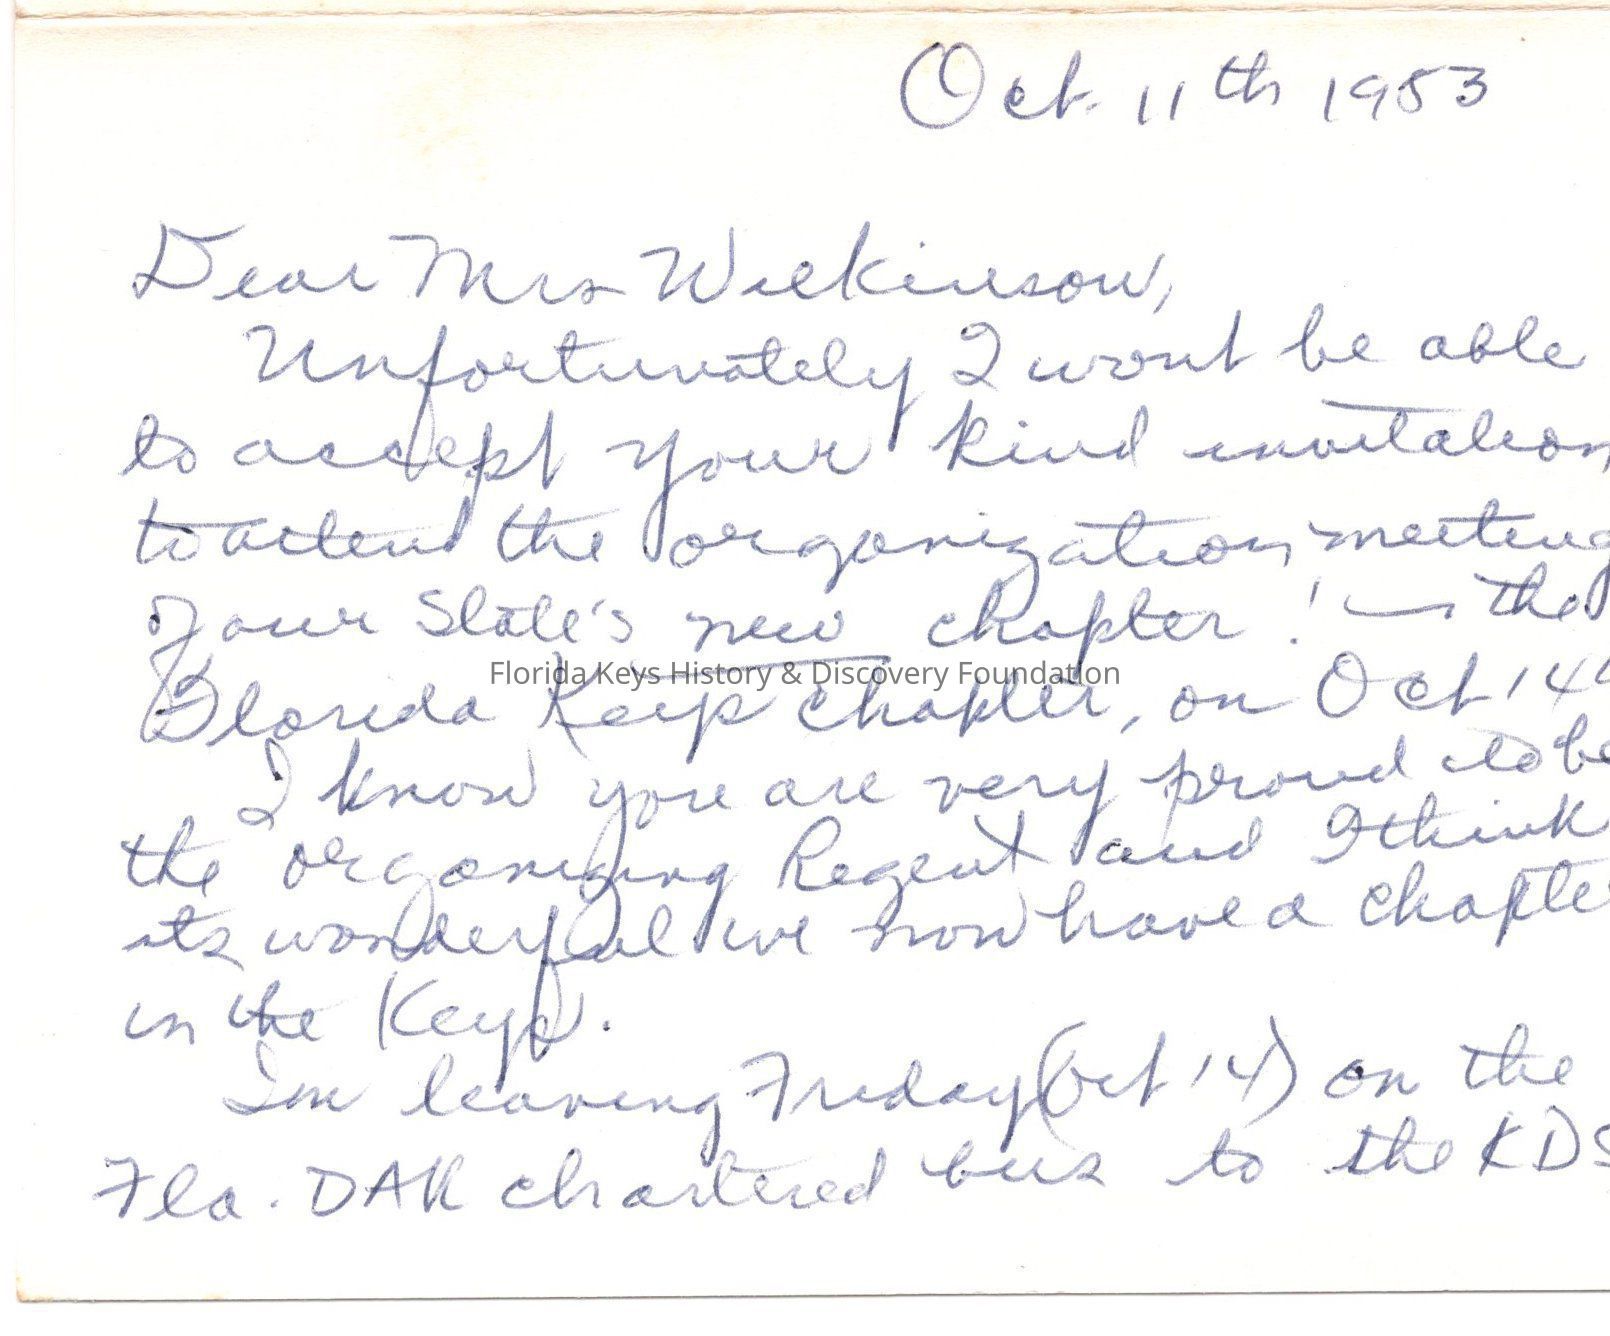 Oct. 11th 1983
Dear Mrs Wilkinson,
Unfortunately I wont be able
to accept your kind invitation
to attend the organization meeting
of our State's new chapter! — the
Florida Keys chapter, on Oct 14th
Florida Keys History & Discovery Foundation
I know you are very proud to be
the organizing Regent and I think
its wonderful we now have a chapter
in the Keys.
Im leaving Friday (Oct 14) on the
Fla. DAR chartered bus to the KDS